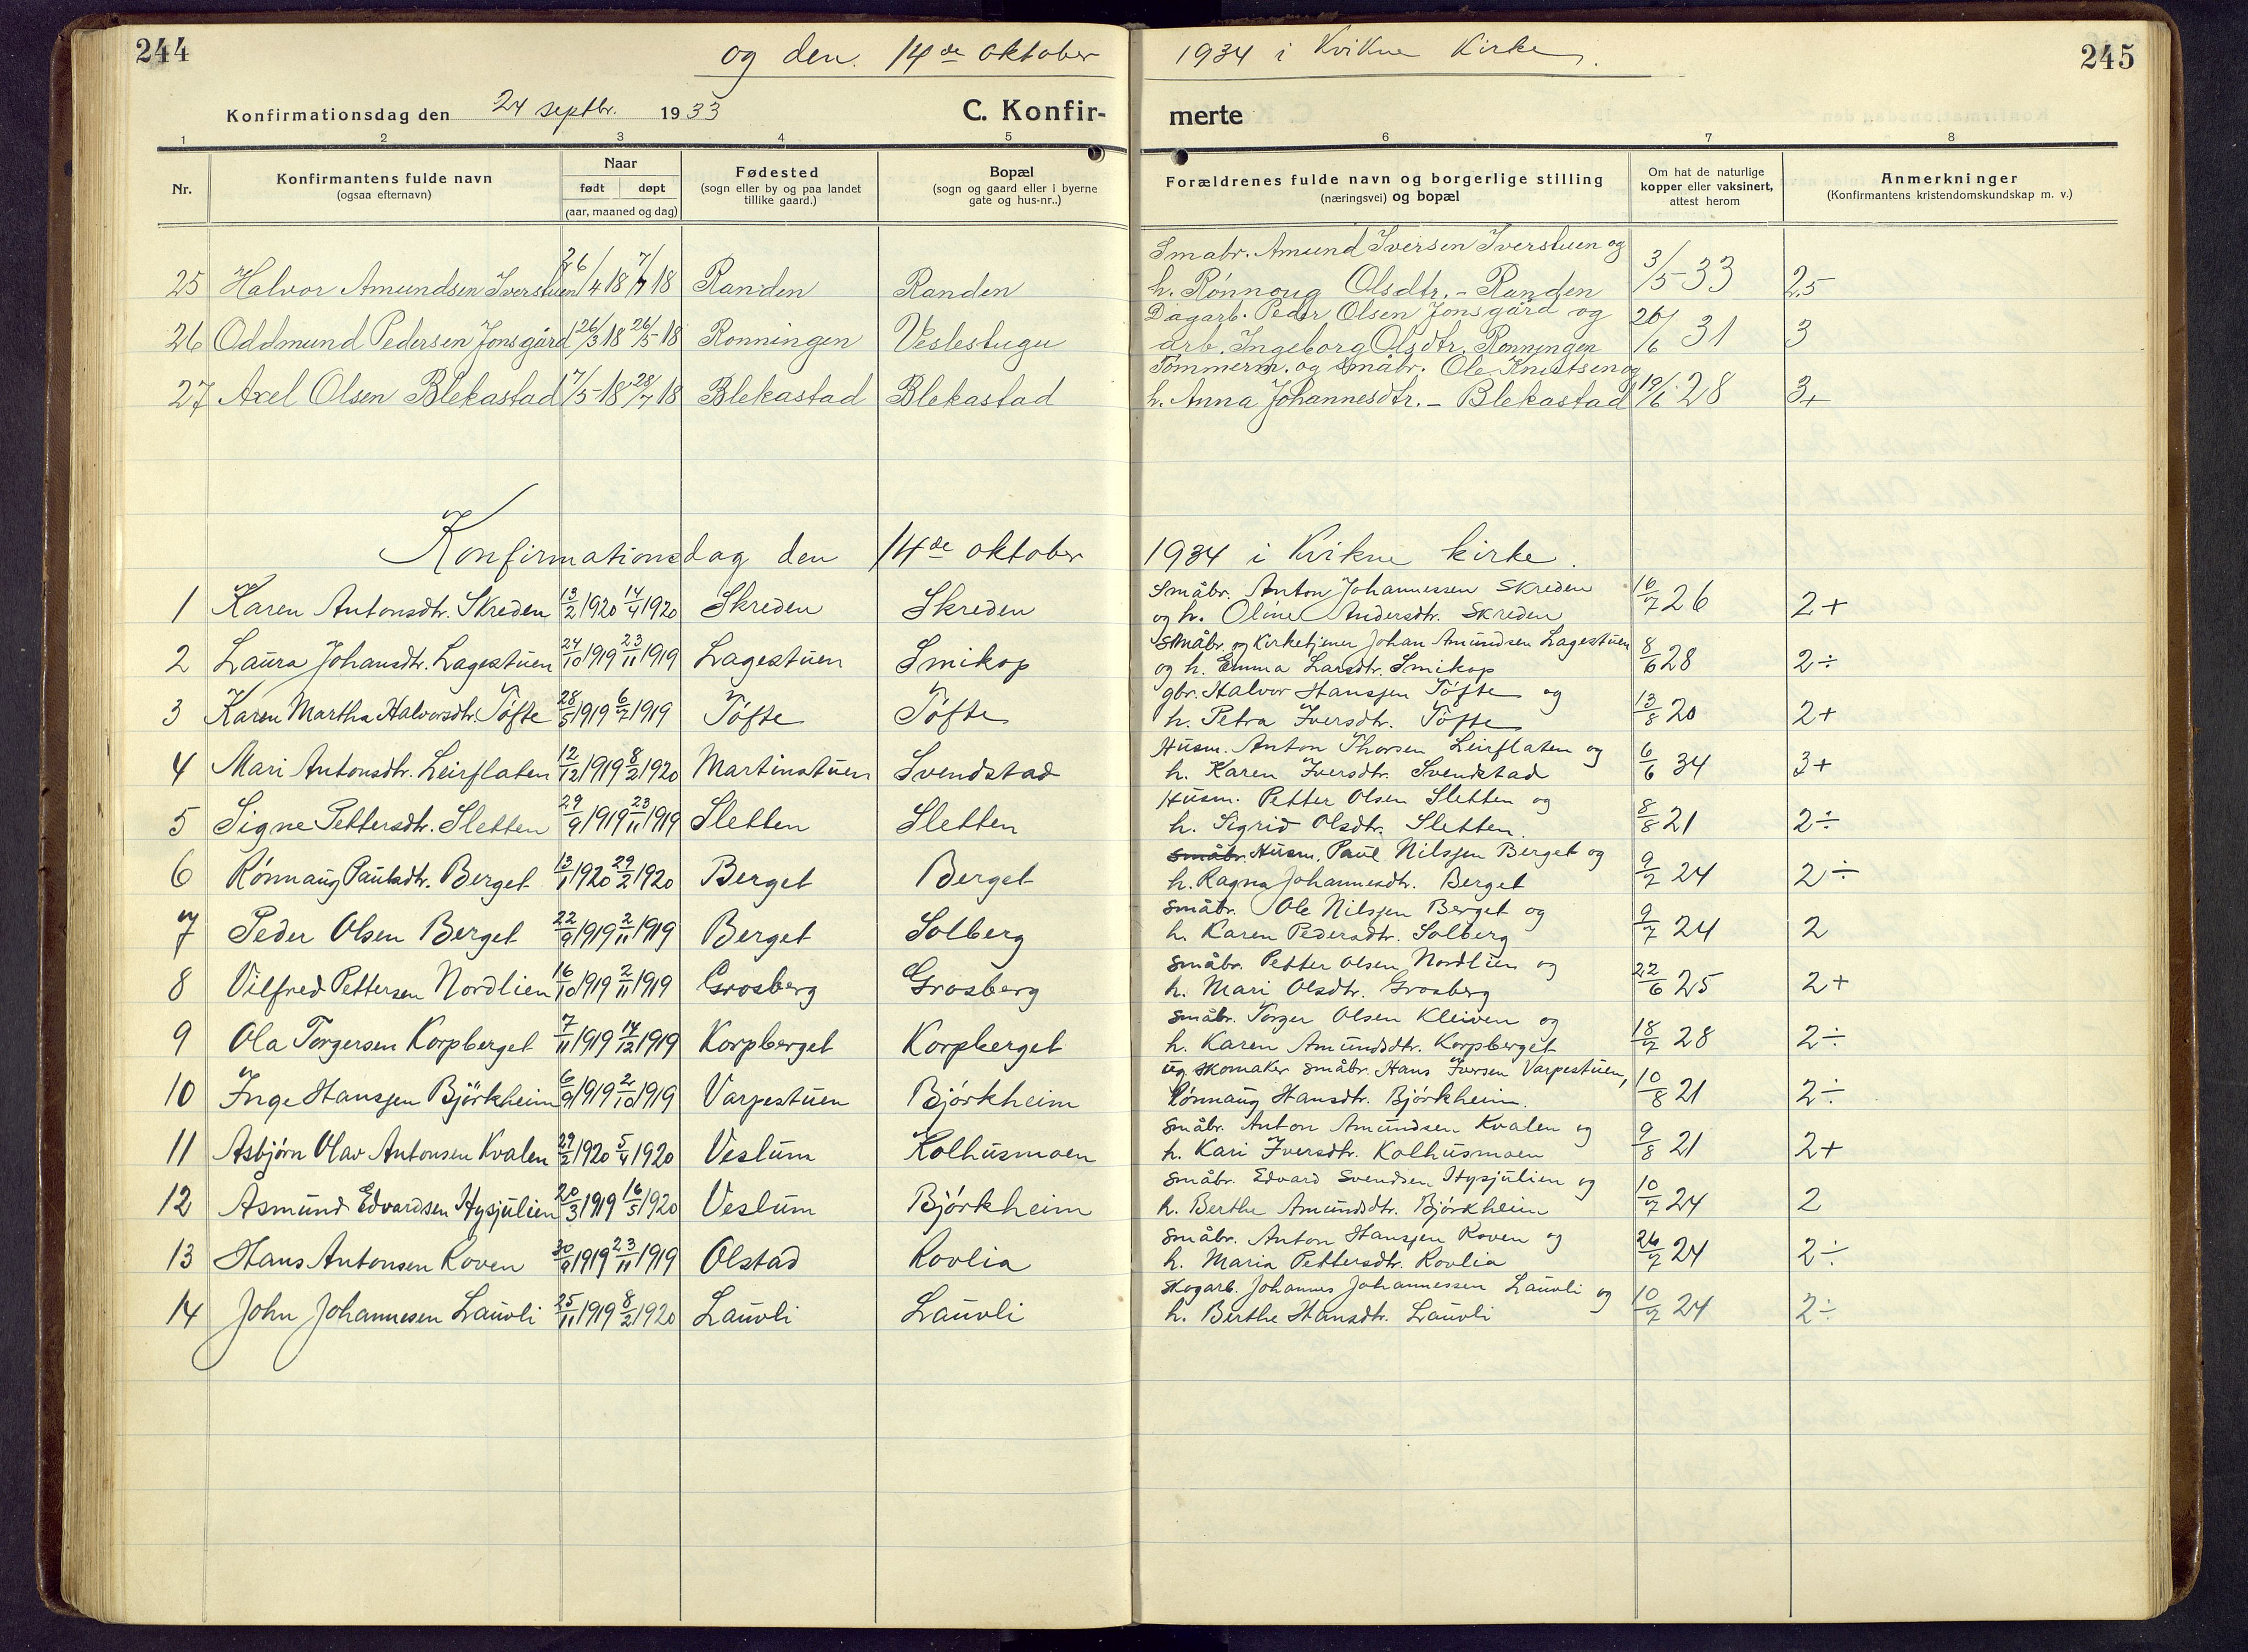 244
og den 14de oktober 1934 i Kvikne Kirke.
245
Konfirmationsdag den 24 septbr. 1933
C. Konfir-
merte
1 2 3 4 5 6 7 8
Nr.
Konfirmantens fulde navn
(ogsaa efternavn)
Naar
født døpt
(aar, maaned og dag)
Fødested
(sogn eller by og paa landet
tillike gaard.)
Bopæl
(sogn og gaard eller i byerne
gate og hus-nr..)
Forældrenes fulde navn og borgerlige stilling
(næringsvei) og bopæl
Om hat de naturlige
kopper eller vaksinert,
attest herom
Anmerkninger
(Konfirmantens kristendomskundskap m. v.)
Smabr. Amund Iversen Iverstuen og
25 Halvor Amundsen Iverstuen 26/4 18 7/7 18 Randen Randen h. Rönnoug Olsdtr. - Randen 3/5-33 2,5
Dagarb. Peder Olsen Jonsgård og
26 Oddmund Pedersen Jonsgård 26/3 18 26/5-18 Ronningen Veslestugu arb. Ingeborg Olsdtr. Ronningen 26/6 31 3
Tømmerm. og småbr. Ole Knutsen og
27 Axel Olsen Blekastad 17/5-18 28/7 18 Blekastad Blekastad h. Anna Johannesdtr. - Blekastad 19/6 28 3+
Konfirmationsdag den 14de oktober 1934 i Kvikne kirke.
Småbr. Anton Johannessen Skreden
1 Karen Antonsdtr. Skreden 13/2 1920 14/4 1920 Skreden Skreden og h. Oline Andersdtr. Skreden 16/7 26 2+
Småbr. og Kirketjener Johan Amundsen Lagestuen
2 Laura Johansdtr. Lagestuen 24/10 1919 23/11 1919 Lagestuen Smikop og h. Emma Larsdtr. Smikop 8/6 28 2÷
gbr. Halvor Hanssen Töfte og
3 Karen Martha Halvorsdtr. Töfte 28/5 1919 6/7 1919 Töfte Töfte h. Petra Iversdtr. Töfte 13/8 20 2+
Husm. Anton Thorsen Leirflaten og
4 Mari Antonsdtr. Leirflaten 12/12 1919 8/2 1920 Martinstuen Svendstad h. Karen Iversdtr. Svendstad 6/6 34 3+
Husm. Petter Olsen Sletten og
5 Signe Pettersdtr. Sletten 29/9 1919 23/11 1919 Sletten Sletten h. Sigrid Olsdtr. Sletten. 8/8 21 2÷
småbr. Husm. Paul Nilssen Berget og
6 Rönnaug Paulsdtr. Berget 13/1 1920 29/2 1920 Berget Berget h. Ragna Johannesdtr. Berget 9/7 24 2÷
småbr. Ole Nilssen Berget og
7 Peder Olsen Berget 22/9 1919 2/11 1919 Berget Solberg h. Karen Pedersdtr. Solberg 9/7 24 2
småbr. Petter Olsen Nordlien og
8 Vilfred Pettersen Nordlien 16/10 1919 2/11 1919 Grosberg Grosberg h. Mari Olsdtr. Grosberg 22/6 25 2+
småbr. Torger Olsen Kleiven og
9 Ola Torgersen Korpberget 7/11 1919 14/12 1919 Korpberget Korpberget h. Karen Amundsdtr. Korpberget 18/7 28 2÷
ug. skomaker småbr. Hans Iversen Varpestuen,
10 Inge Hanssen Björkheim 6/9 1919 2/10 1919 Varpestuen Björkheim Rönnaug Hansdtr. Björkheim. 10/8 21 2÷
småbr. Anton Amundsen Kvalen og
11 Asbjørn Olav Antonsen Kvalen 29/2 1920 5/4 1920 Veslum Kolhusmoen h. Kari Iversdtr. Kolhusmoen 9/8 21 2+
småbr. Edvard Svendsen Hysjulien og
12 Asmund Edvardsen Hysjulien 20/3 1919 16/5 1920 Veslum Björkheim h. Berthe Amundsdtr. Björkheim 10/7 24 2
småbr. Anton Hanssen Roven og
13 Hans Antonsen Roven 30/9 1919 23/11 1919 Olstad Rovlia h. Maria Pettersdtr. Rovlia 26/7 24 2÷
skogarb. Johannes Johannessen Lauvli og
14 John Johannesen Lauvli 25/11 1919 8/2 1920 Lauvli Lauvli h. Berthe Hansdtr. Lauvli 10/7 24 2÷